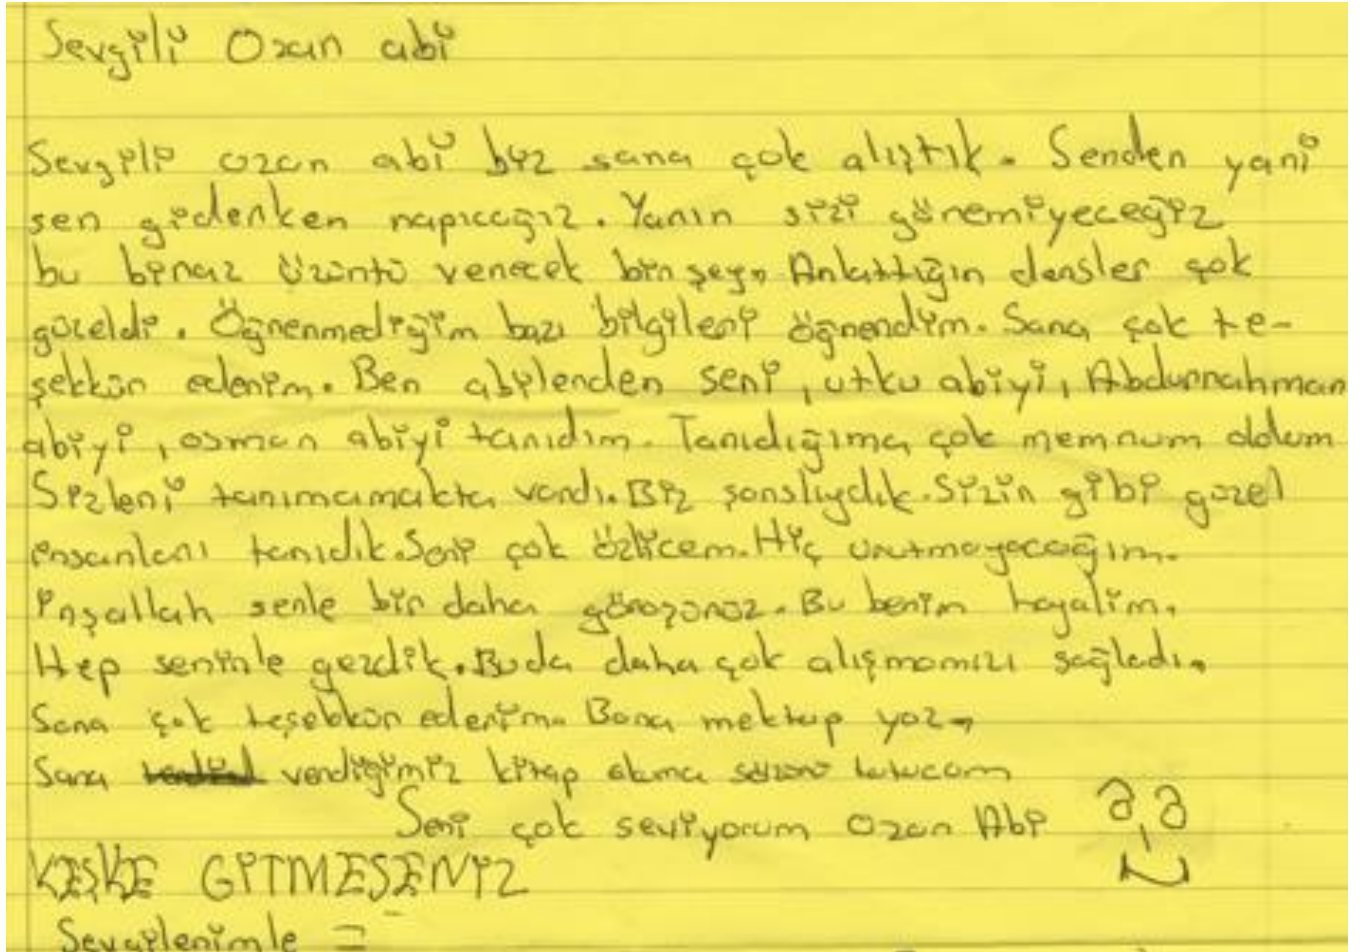 Sevgili Ozan abi
Sevgili ozan abi biz sana çok alıştık. Senden yani
sen giderken napıcağız. Yarın sizi göremiyeceğiz
bu biraz üzüntü verecek bir şey. Anlattığın dersler çok
güzeldi. Öğrenmediğim bazı bilgileri öğrendim. Sana çok te-
şekkür ederim. Ben abilerden seni, utku abiyi, Abdurrahman
abiyi, osman abiyi tanıdım. Tanıdığıma çok memnum oldum
Sizleri tanımamakta vardı. Biz şanslıydık. Sizin gibi güzel
ensanları tanıdık. Seni çok özlicem. Hiç unutmayacağım.
inşallah senle bir daha görüşürüz. Bu benim hayalim.
Hep seninle gezdik. Buda daha çok alışmamızı sağladı.
Sana çok teşekkür ederim. Bana mektup yaz.
Sana verdiğimiz kitap okuma sözünü tutucam
Seni çok seviyorum Ozan Abi
KEŞKE GİTMESENİZ
Sevgilerimle =